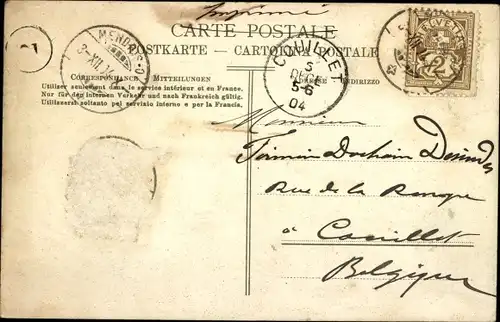 Imprimé
CARTE POSTALE
POSTKARTE - CARTOLINA POSTALE
CORRESPONDANCE MITTEILUNGEN
ADRESSE INDIRIZZO
Utiliser seulement dans le service intérieur et en France.
Nur für den internen Verkehr und nach Frankreich gültig.
Utilizzarsi soltanto pel servizio interno e per la Francia.
MENDRISIO
3-XII
COUILLET
5
DEC
5-6
04
HELVETIA
2
Monsieur
Firmin Dochain
Rue de la
à Couillet
Belgique